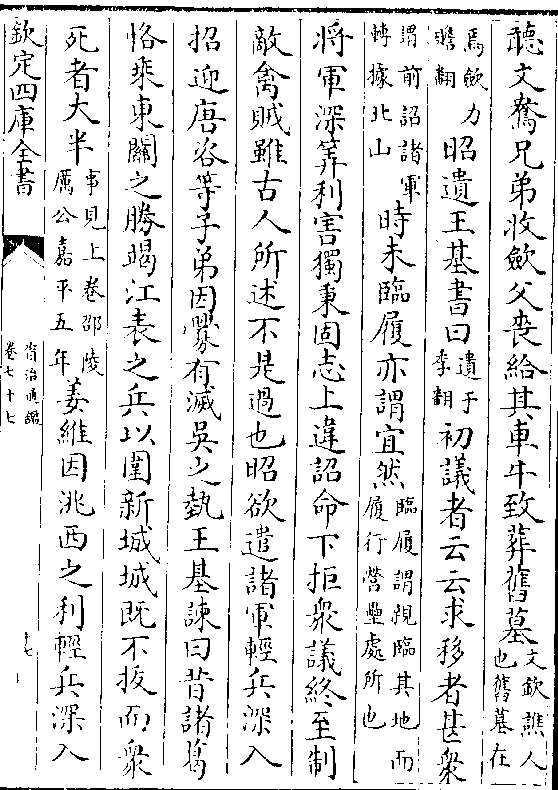 聽文鴦兄弟收斂父喪給其車牛致葬舊墓文欽譙人也舊墓在
焉斂力贍翻昭遺王基書曰遺于季翻初議者云云求移者甚衆
謂前詔諸軍轉據北山時未臨履亦謂宜然臨履謂親臨其地而履行營壘處所也
將軍深筭利害獨秉固志上違詔命下拒衆議終至制
敵禽賊雖古人所述不是過也昭欲遣諸軍輕兵深入
招迎唐咨等子弟因釁有滅吳之埶王基諫曰昔諸葛
恪乘東關之勝竭江表之兵以圍新城城既不拔而衆
死者大半事見上卷邵陵厲公嘉平五年姜維因洮西之利輕兵深入
欽定四庫全書
資治通鑑
卷七十七
十七